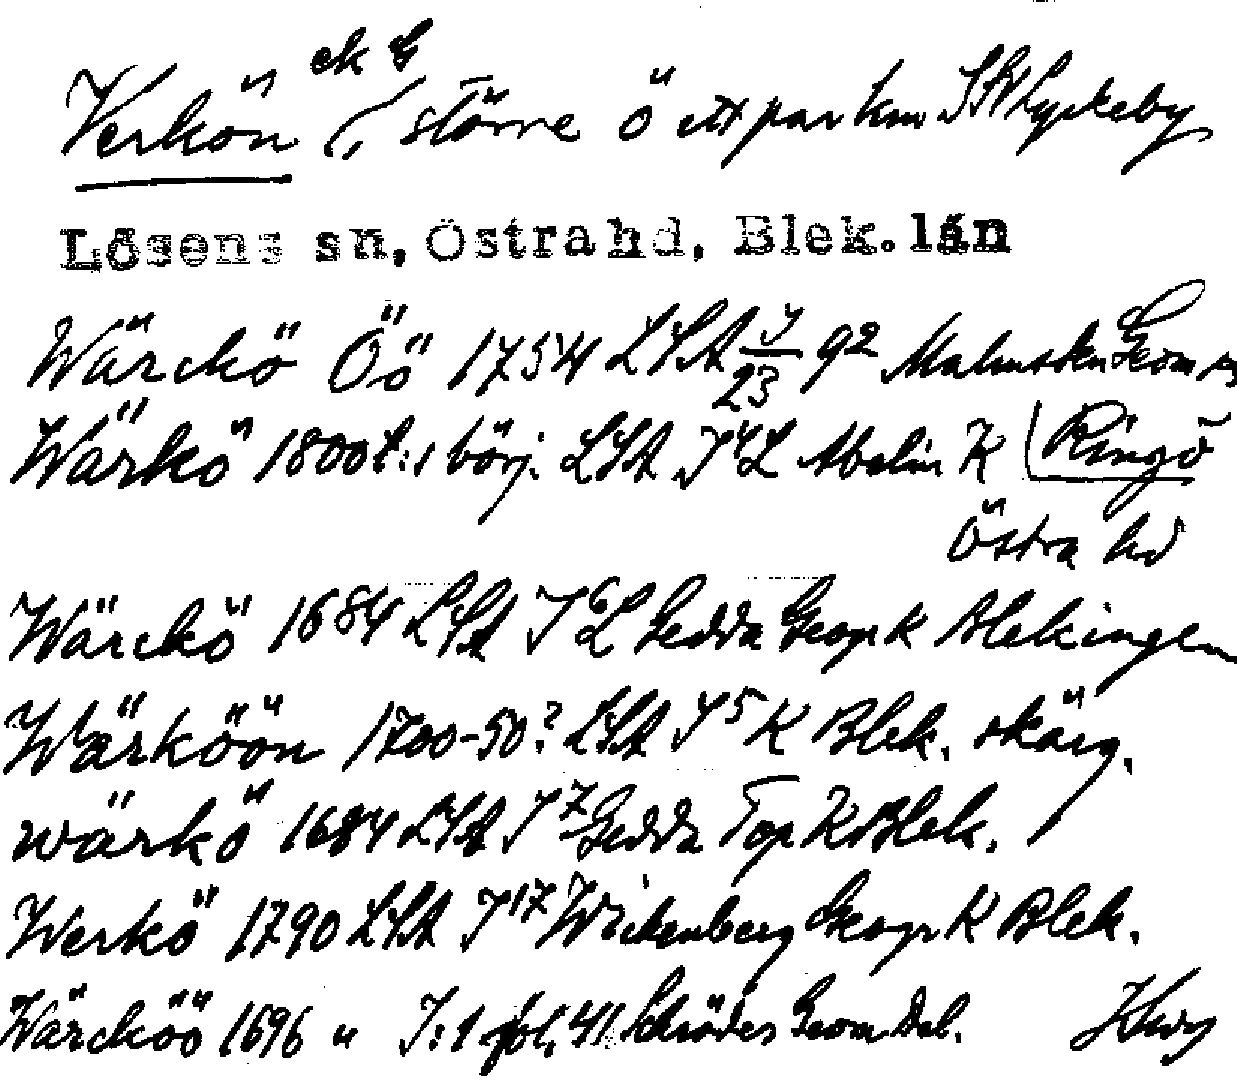 ek G
Verkön, större ö ett par km SSV Lyckeby
Lösens sn, Östra hd, Blek. län
Wärckö Öö 1754 LSA I/23 92 Malmsten Geom
Wärkö 1800t:s börj. LSA I4L Abelin K Ringö
Östra hd
Wärckö 1684 LSA I6L Gedda Geogr K Blekingen
Wärköön 1700-50? LSA I5 K Blek. skärg.
wärkö 1684 LSA I7 Gedda Top K Blek.
Werkö 1790 LSA I17 Wickenberg Geogr K Blek.
Wärcköö 1696 " I:1 fol. 41 Schröders Geom Del.